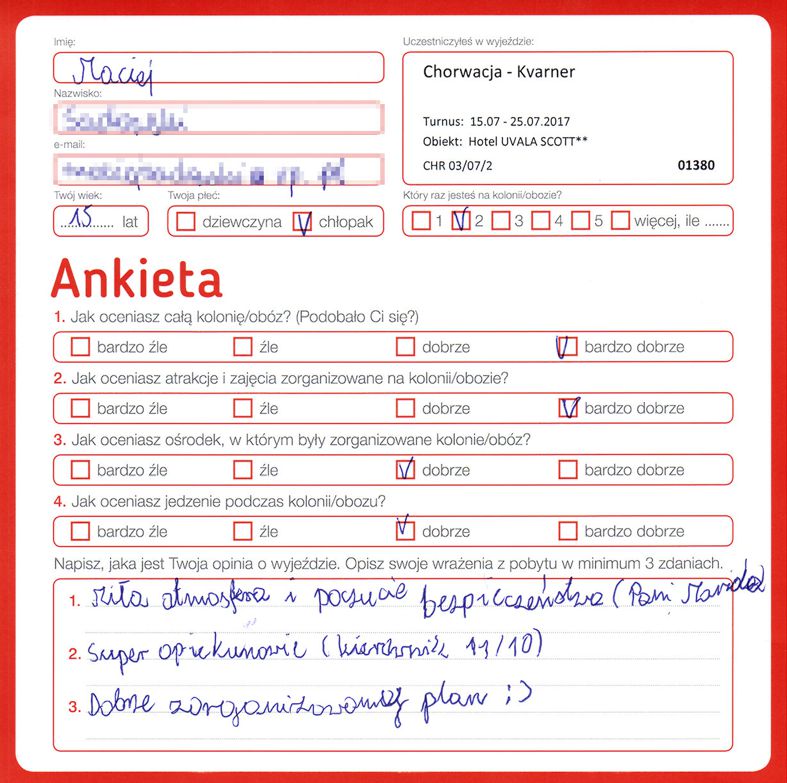 Imię:
Maciej
Nazwisko:
e-mail:
Twój wiek:
15 lat
Twoja płeć:
dziewczyna chłopak
Uczestniczyłeś w wyjeździe:
Chorwacja - Kvarner
Turnus: 15.07 - 25.07.2017
Obiekt: Hotel UVALA SCOTT**
CHR 03/07/2 01380
Który raz jesteś na kolonii/obozie?
1 2 3 4 5 więcej, ile .......
Ankieta
1. Jak oceniasz całą kolonię/obóz? (Podobało Ci się?)
bardzo źle źle dobrze bardzo dobrze
2. Jak oceniasz atrakcje i zajęcia zorganizowane na kolonii/obozie?
bardzo źle źle dobrze bardzo dobrze
3. Jak oceniasz ośrodek, w którym były zorganizowane kolonie/obóz?
bardzo źle źle dobrze bardzo dobrze
4. Jak oceniasz jedzenie podczas kolonii/obozu?
bardzo źle źle dobrze bardzo dobrze
Napisz, jaka jest Twoja opinia o wyjeździe. Opisz swoje wrażenia z pobytu w minimum 3 zdaniach.
1. Miła atmosfera i poczucie bezpieczeństwa (Pani
2. Super opiekunowie (kierownik 11/10)
3. Dobrze zorganizowany plan ;)